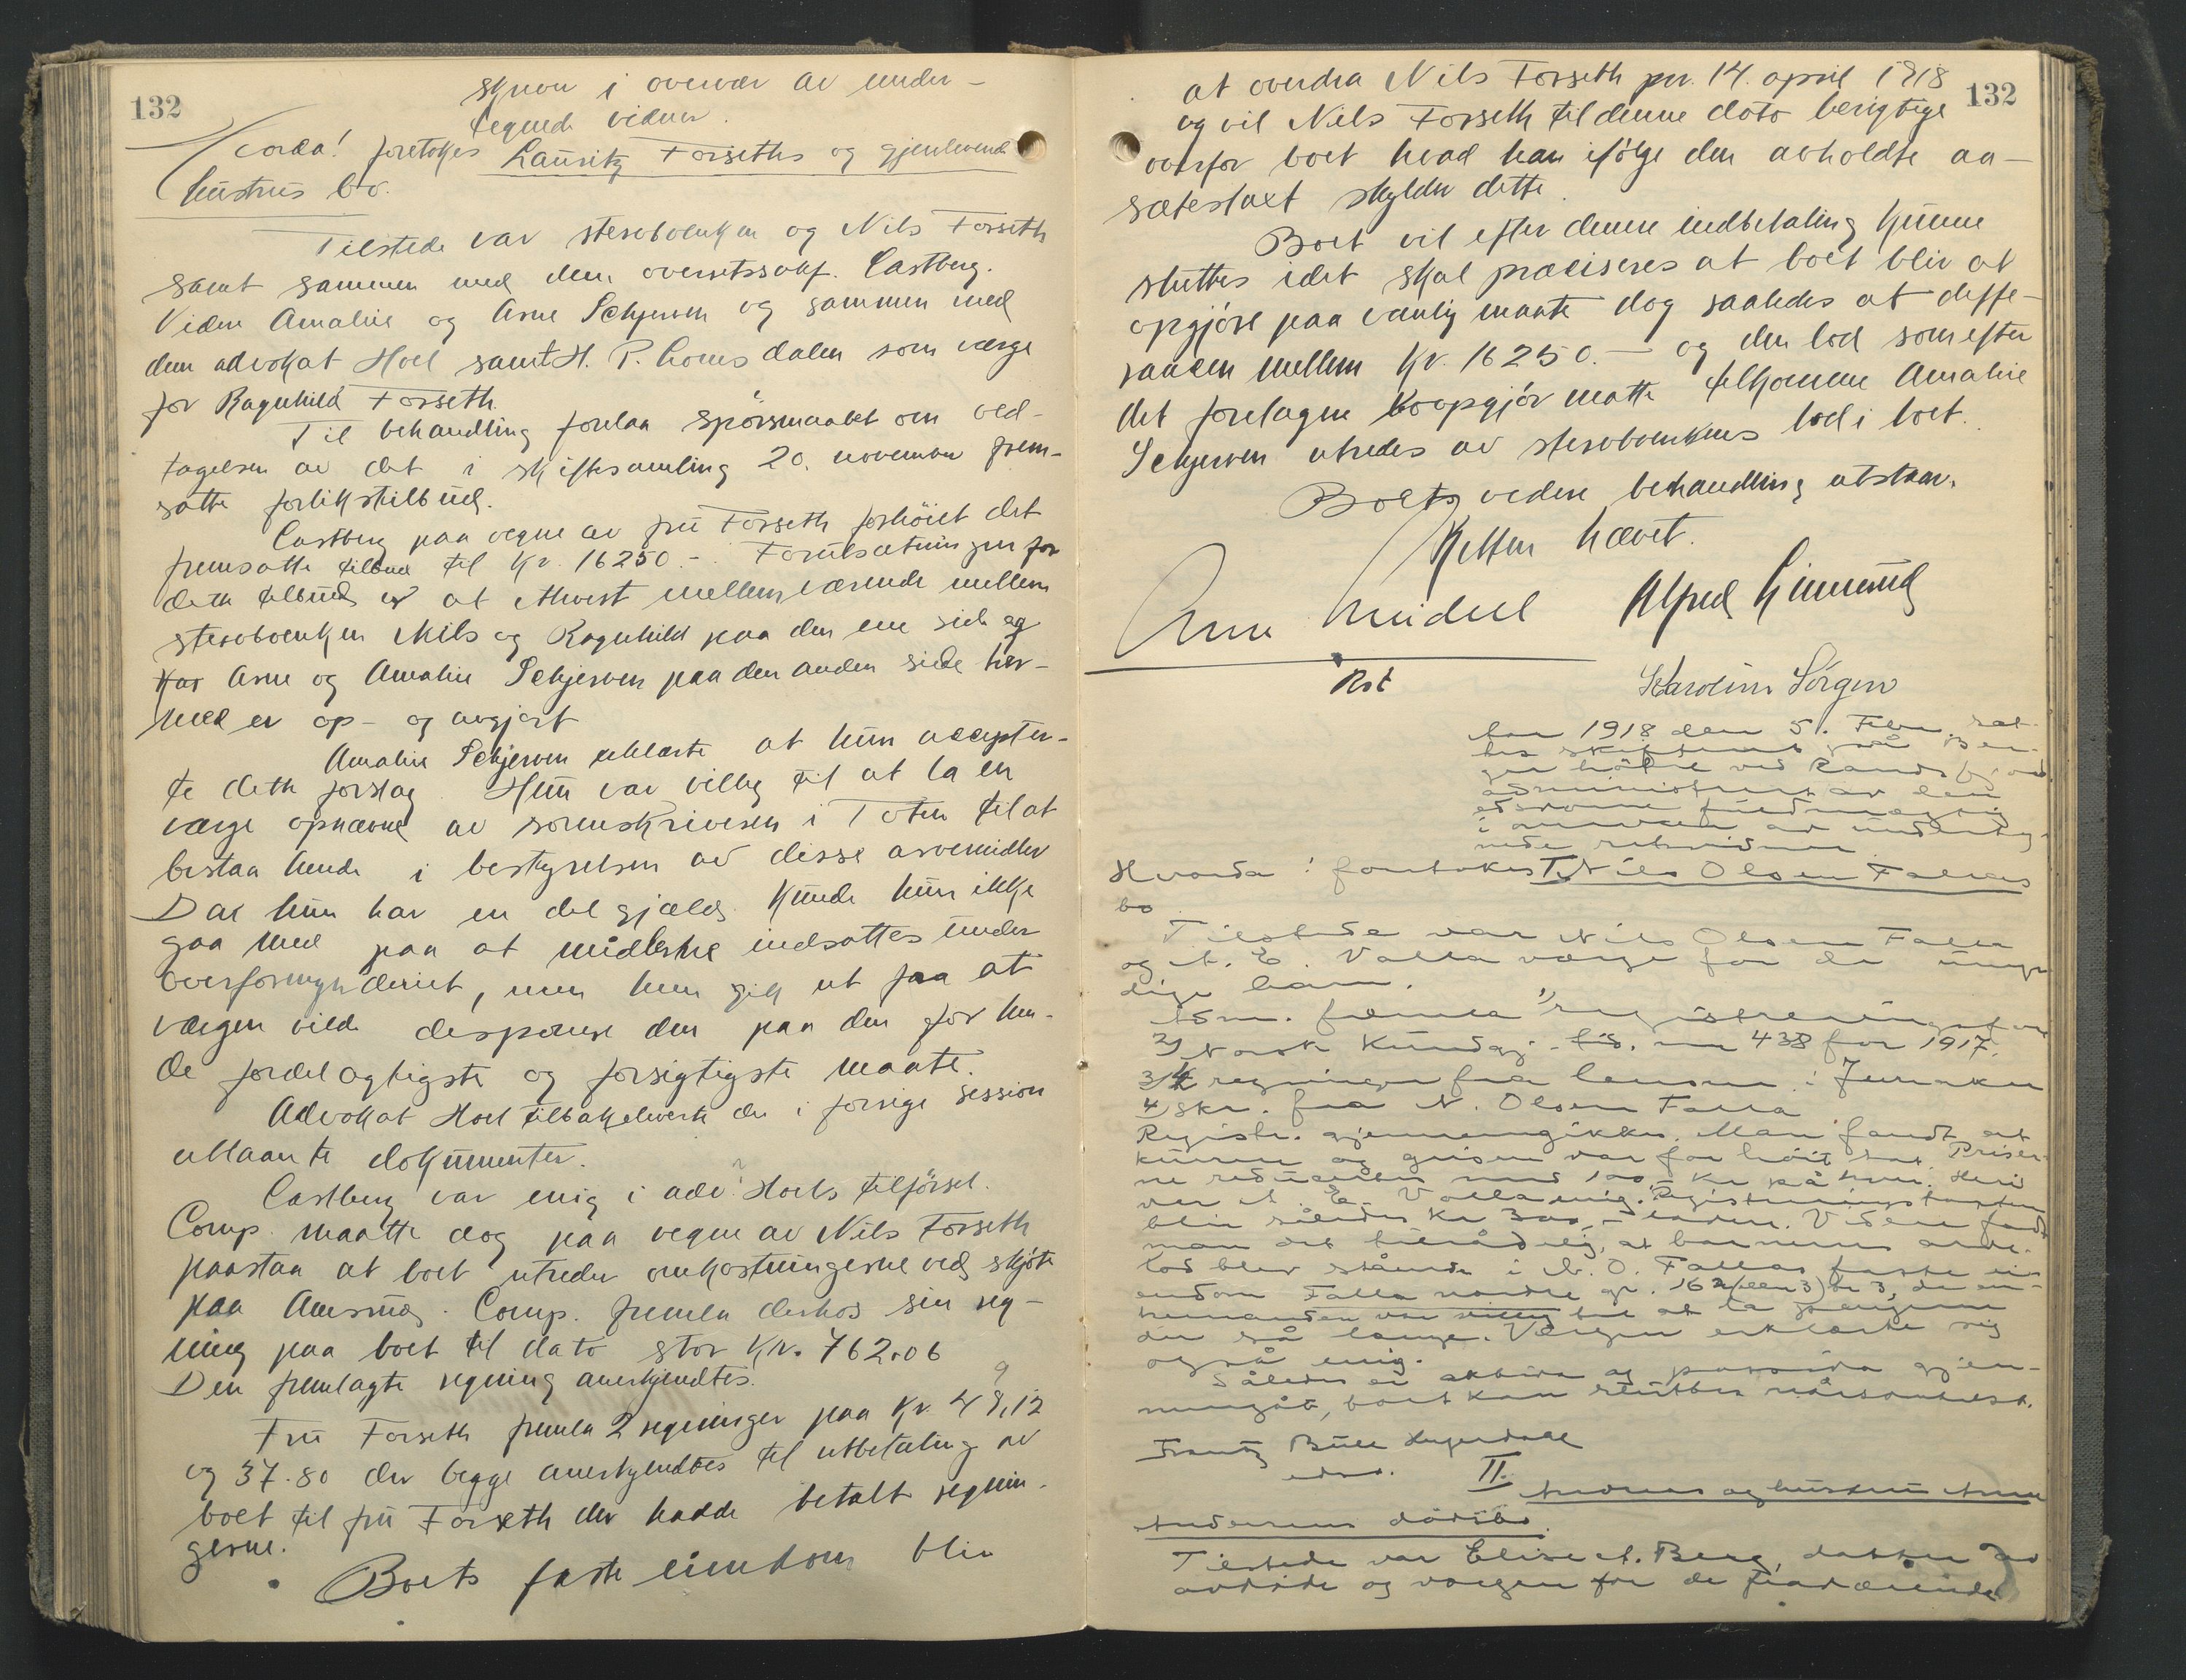 132
skriver i overvær av under-
tegnede vidner.
Hvorda! foretokes Lauritz Forseths og gjenlevende
hustrus bo.
Tilstede var stervboenken og Nils Forseth
samt sammen med dem overretssakf. Castberg.
Videre Amalie og Arne Schjerven og sammen med
dem advokat Hoel samt H. P. Lomsdalen som værge
for Ragnhild Forseth.
Til behandling forelaa spørsmaalet om ved-
tagelsen av det i skiftesamling 20. november frem-
satte forlikstilbud.
Castberg paa vegne av fru Forseth forhöiet det
fremsatte tilbud til Kr. 16250.- Forutsætningen for
dette tilbud er at ethvert mellemværende mellem
stervboenken Nils og Ragnhild paa den ene side og
Arne og Amalie Schjerven paa den anden side her-
med er op- og avgjort
Amalie Schjerven erklærte at hun accepter-
te dette forslag. Hun var villig til at la en
værge opnævne av sorenskriveren i Toten til at
bistaa hende i bestyrelsen av disse arvemidler
Da hun har en del gjæld kunde hun ikke
gaa med paa at midlerne indsattes under
overformynderiet, men hun gik ut fra at
værgen vilde disponere den paa den for hen-
de fordelagtigste og forsigtigste maate.
Advokat Hoel tilbakeleverte de i forrige session
utlaante dokumenter.
Castberg var enig i adv. Hoels tilförsel.
Comp. maatte dog paa vegne av Nils Forseth
paastaa at boet utreder omkostningerne ved skjöte
paa Amsrud. Comp. fremla derhos sin reg-
ning paa boet til dato stor Kr. 762.06
Den fremlagte regning anerkjendtes.
Fru Forseth fremla 2 regninger paa Kr. 49,12
og 37.80 der begge anerkjendtes til utbetaling av
boet til fru Forseth der hadde betalt regnin-
gerne.
Boets faste eiendom blir
132
at overdra Nils Forseth pr. 14. april 1918
og vil Nils Forseth til denne dato berigtige
overfor boet hvad han ifölge den avholdte aa-
sætestaxt skylder dette.
Boet vil efter denne indbetaling kunne
sluttes idet skal præciseres at boet blir at
opgjöre paa vanlig maate dog saaledes at diffe-
rancen mellem Kr. 16250.- og den lod som efter
det foretagne boopgjör maatte tilkomme Amalie
Schjerven utredes av stervboenkens lod i boet.
Boets videre behandling utstaar.
Retten hævet.
Alfred Gimmestad
Karoline Sörgen
Aar 1918 den 5. Febr. sat-
tes skifteret på Ber-
ger hotel ved Randsfjord
administrert av den
edsvorne fuldmægtig
i overvær av underteg-
nede retsvidner
Hvorda! foretokes I. Nils Olsen Fallas
bo.
Tilstede var Nils Olsen Falla
og A. E. Volla værge for de umyn-
dige barn.
Adm. fremla 1) registrerings
2) Norsk Kundgj.- tid. nr 438 for 1917.
3) 4 regninger fra lensm. i Jevnaker
4) Skr. fra N. Olsen Falla
Registr. gjennemgikkes. Man fandt at
kuerne og grisene var for høit sat. Priser-
ne reduceredes med 100,- kr på hver. Heri
var A. E. Volla enig. Registreringstaxten
blir således kr 300,- lavere. Videre fandt
man det tilrådelig, at barnenes arve-
lod blev stående i N. O. Fallas faste ei-
endom Falla nordre gr. 162 br 3, da en-
kemanden var villig til at la pengene
stå så længe. Værgen erklærte sig
også enig.
Således er aktiva og passiva gjen-
nemgåt, boet kan sluttes nårsomhelst.
Frantz Bull
edsv.
II.
Andreas og hustru Anne
Andersens dödsbo.
Tilstede var Elise A. Berg, datter av
avdöde og værgen for de fraværende